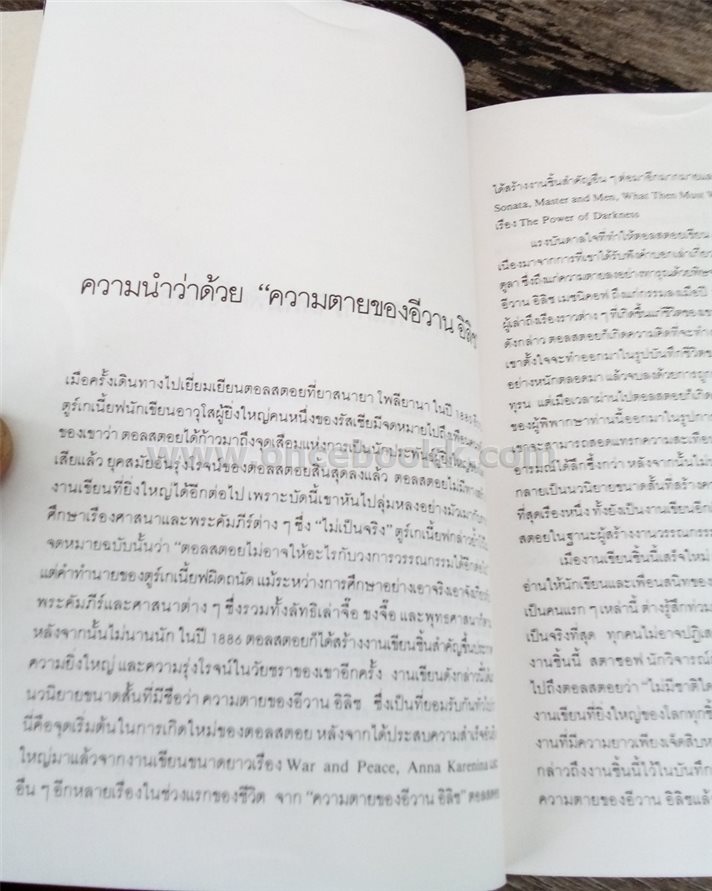 ความนำว่าด้วย “ความตายของอีวาน อิลิช
เมื่อครั้งเดินทางไปเยี่ยมเยียนตอลสตอยที่ยาสนายา โพลียานา ในปี
ตูร์เกเนี้ยฟนักเขียนอาวุโสผู้ยิ่งใหญ่คนหนึ่งของรัสเซียมีจดหมายไปถึงเพื่อน
ของเขาว่า ตอลสตอยได้ก้าวมาถึงจุดเสื่อมแห่งการเป็นนักประพันธ์ผู้ยิ่งใหญ่
เสียแล้ว ยุคสมัยอันรุ่งโรจน์ของตอลสตอยสิ้นสุดลงแล้ว ตอลสตอยไม่มีทาง
งานเขียนที่ยิ่งใหญ่ได้อีกต่อไป เพราะบัดนี้เขาหันไปลุ่มหลงอย่างมัวเมากับ
ศึกษาเรื่องศาสนาและพระคัมภีร์ต่าง ๆ ซึ่ง “ไม่เป็นจริง” ตูร์เกเนี้ยฟกล่าว
จดหมายฉบับนั้นว่า “ตอลสตอยไม่อาจให้อะไรกับวงการวรรณกรรมได้อีก
แต่คำทำนายของตูร์เกเนี้ยฟผิดถนัด แม้ระหว่างการศึกษาอย่างเอาจริงเอาจัง
พระคัมภีร์และศาสนาต่าง ๆ ซึ่งรวมทั้งลัทธิเล่าจื๊อ ขงจื๊อ และพุทธศาสนา
หลังจากนั้นไม่นานนัก ในปี 1886 ตอลสตอยก็ได้สร้างงานเขียนชิ้นสำคัญขึ้น
ความยิ่งใหญ่ และความรุ่งโรจน์ในวัยชราของเขาอีกครั้ง งานเขียนดังกล่าวนี้
นวนิยายขนาดสั้นที่มีชื่อว่า ความตายของอีวาน อิลิช ซึ่งเป็นที่ยอมรับกัน
นี้คือจุดเริ่มต้นในการเกิดใหม่ของตอลสตอย หลังจากได้ประสบความสำเร็จ
ใหญ่มาแล้วจากงานเขียนขนาดยาวเรื่อง War and Peace, Anna Karenina และ
อื่น ๆ อีกหลายเรื่องในช่วงแรกของชีวิต จาก “ความตายของอีวาน อิลิช” ตอลสตอย
ได้สร้างงานชิ้นสำคัญอื่น ๆ ต่อมาอีกมากมายและ
Sonata, Master and Men, What Then Must W
เรื่อง The Power of Darkness
แรงบันดาลใจที่ทำให้ตอลสตอยเขียน
เนื่องมาจากการที่เขาได้รับฟังคำบอกเล่าเกี่ยว
ตุลา ซึ่งถึงแก่ความตายลงอย่างทารุณด้วยพิษ
อีวาน อิลิช เมชนิคอฟ ถึงแก่กรรมลงเมื่อปี
ผู้เล่าถึงเรื่องราวต่าง ๆ ที่เกิดขึ้นแก่ชีวิตของเขา
ดังกล่าว ตอลสตอยก็เกิดความคิดที่จะทำ
เขาตั้งใจจะทำออกมาในรูปบันทึกชีวิต
อย่างหนักตลอดมา แล้วจบลงด้วยการถูก
ทุรน แต่เมื่อเวลาผ่านไปตอลสตอยก็เกิด
ของผู้พิพากษาท่านนี้ออกมาในรูปการ
เขาจะสามารถสอดแทรกความสะเทือน
อารมณ์ได้ลึกซึ้งกว่า หลังจากนั้นไม่
กลายเป็นนวนิยายขนาดสั้นที่สร้าง
ที่สุดเรื่องหนึ่ง ทั้งยังเป็นงานเขียนอีก
สตอยในฐานะผู้สร้างงานวรรณกรรม
เมื่องานเขียนชิ้นนี้เสร็จใหม่
อ่านให้นักเขียนและเพื่อนสนิทของ
เป็นคนแรก ๆ เหล่านี้ ต่างรู้สึกท่วม
เป็นจริงที่สุด ทุกคนไม่อาจปฏิเส
งานชิ้นนี้ สตาซอฟ นักวิจารณ์
ไปถึงตอลสตอยว่า “ไม่มีชาติใด
งานเขียนที่ยิ่งใหญ่ของโลกทุกชิ้น
งานที่มีความยาวเพียงเจ็ดสิบ
กล่าวถึงงานชิ้นนี้ไว้ในบันทึก
ความตายของอีวาน อิลิชแล้